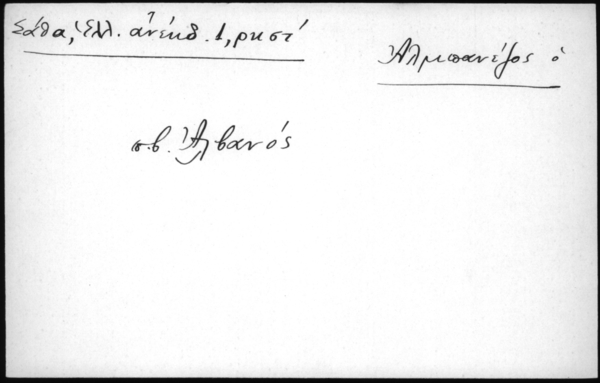 Σάθα, Ἑλλ. ἀνέκδ. 1, ρκστ΄
Ἀλμπανέζος ὁ
π.β. Ἀλβανός